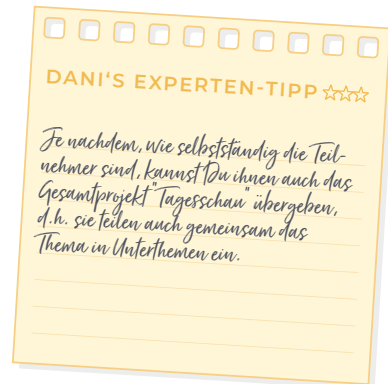 DANI'S EXPERTEN-TIPP
Je nachdem, wie selbstständig die Teil-
nehmer sind, kannst Du ihnen auch das
Gesamtprojekt "Tagesschau" übergeben,
d.h. sie teilen auch gemeinsam das
Thema in Unterthemen ein.